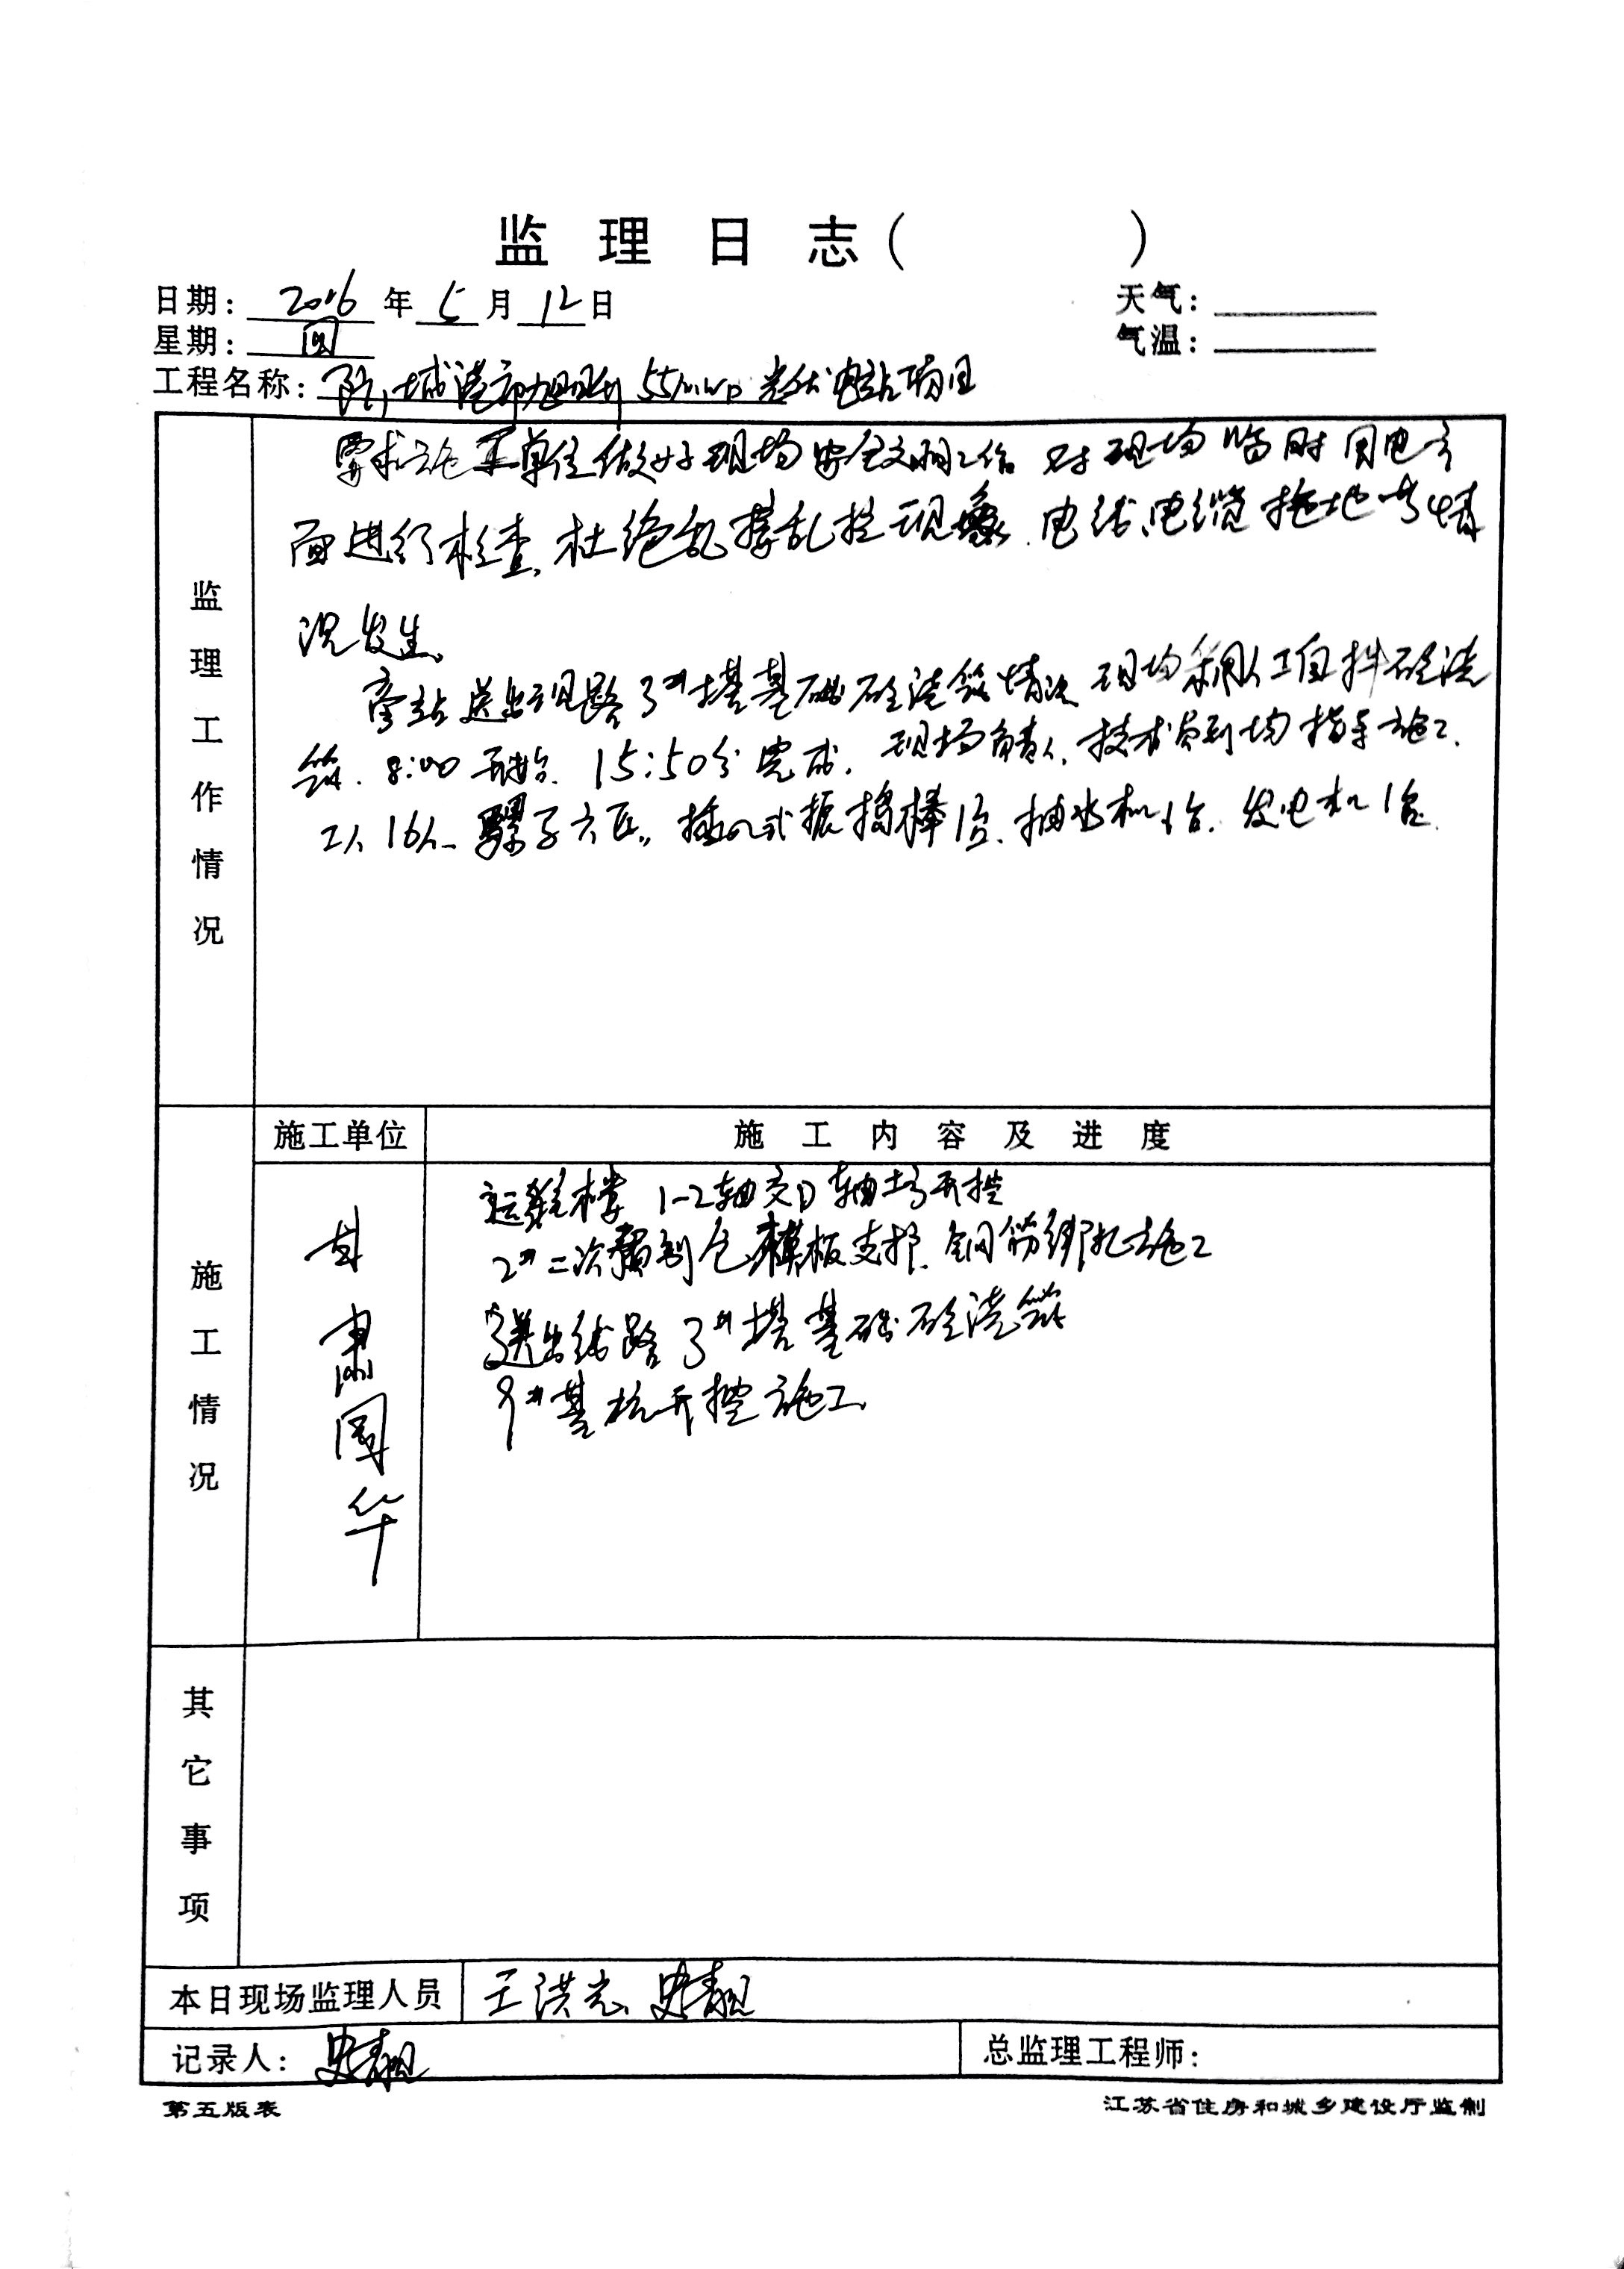 监理日志（ ）
日期：2016年5月12日 天气：
星期：四 气温：
工程名称：防城港市旭 55MWp光伏电站项目
监理工作情况
要求施工单位做好现场安全文明工作 对现场临时用电方
面进行检查，杜绝乱搭乱拉现象、电线、电缆拖地等情
况发生。
旁站送出线路3#塔基基础砼浇筑情况 现场采用人工自拌砼浇
筑．8:00开始．15:50分完成．现场负责人、技术员到场指导施工．
工人16人、骡子六匹，插入式振捣棒1台、抽水机1台．发电机1台．
施工单位 施工内容及进度
施工情况
国华
运维楼 1-2轴交D轴土方开挖
2#二次预制仓模板支护、钢筋绑扎施工
送出线路3#塔基基础砼浇筑
9#基坑开挖施工
其它事项
本日现场监理人员 王洪志、史
记录人：史
总监理工程师：
第五版表 江苏省住房和城乡建设厅监制